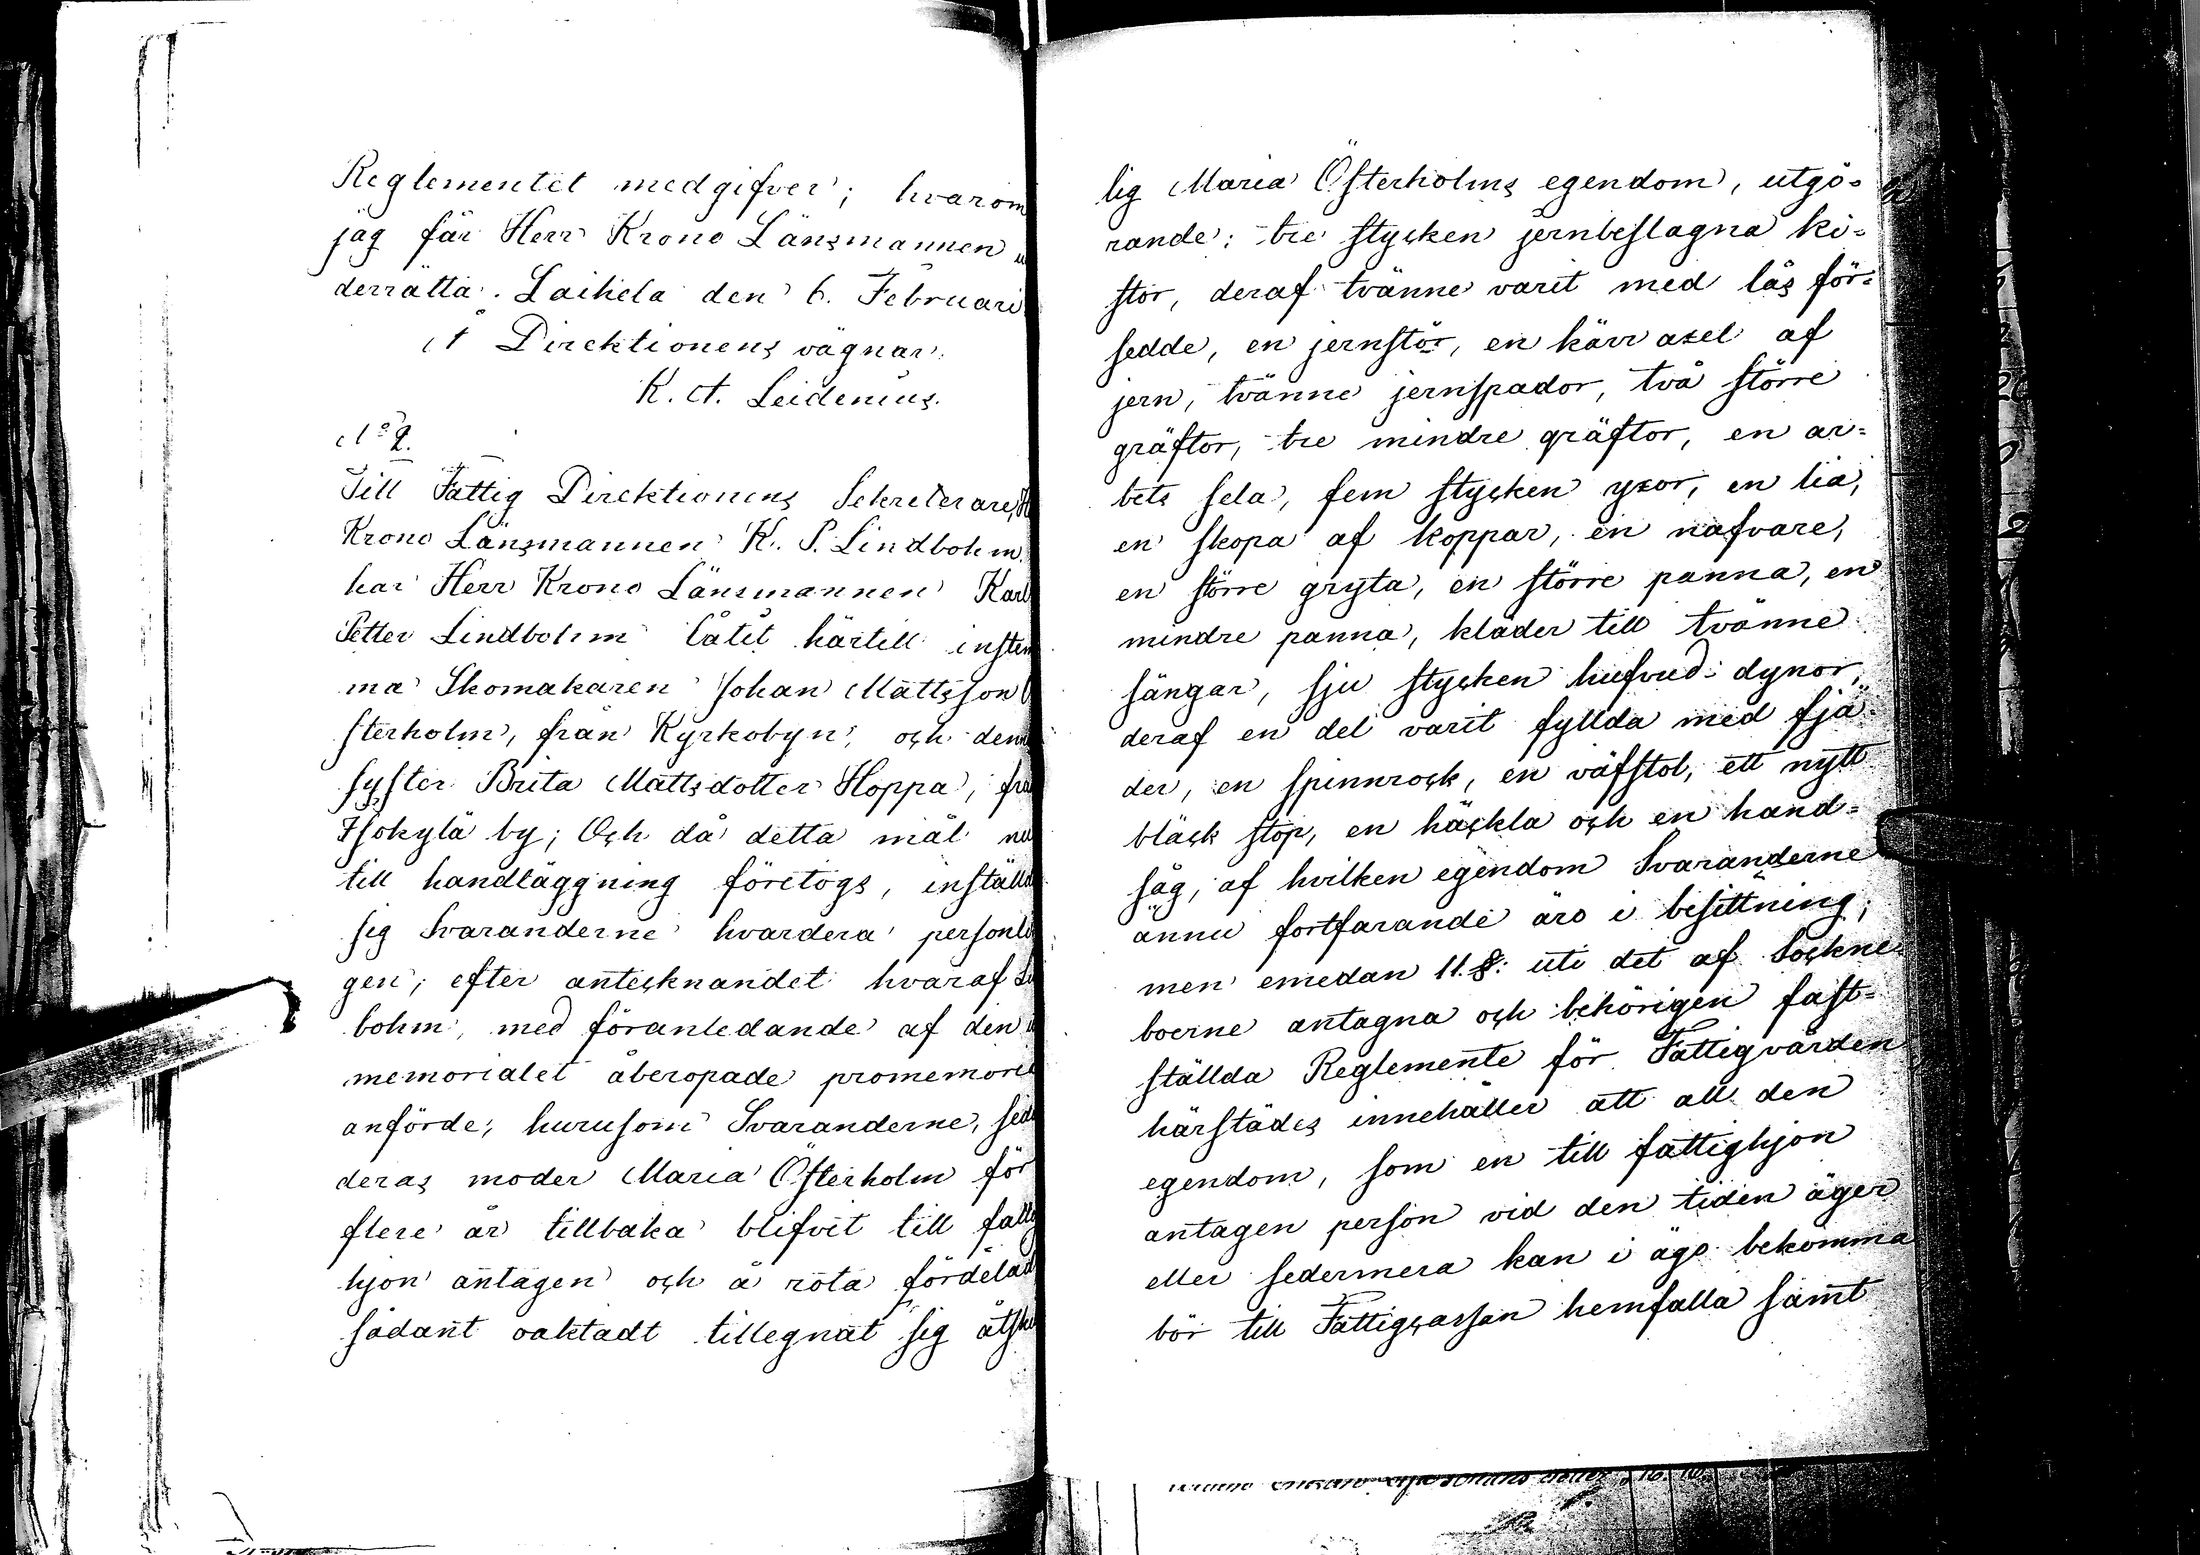 Reglementet medgifver; hvarom
jag får Herr Krono Länsmannen
derrätta. Laihela den 6. Februari
Å Direktionens vägnar.
K. A. Leidenius.
No 2.
Till Fattig Direktionens Sekreterare,
Krono Länsmannen K. P. Lindbohm
har Herr Krono Länsmannen Karl
Petter Lindbohm låtit härtill instem
ma Skomakaren Johan Mattsson Ö
sterholm, från Kyrkobyn, och denn
syster Brita Mattsdotter Hoppa, frå
Isokylä by; Och då detta mål nu
till handläggning företogs, inställd
sig Svaranderne hvardera personli
gen; efter antecknandet hvaraf Li
bohm, med föranledande af den i
memorialet åberopade promemori
anförde, hurusom Svaranderne, sed
deras moder Maria Österholm för
flere år tillbaka blifvit till fattig
hjon antagen och å rota fördelad
sådant oaktadt tillegnat sig åtski
lig Maria Österholms egendom, utgö=
rande: tre stycken jernbeslagna ki=
stor, deraf tvänne varit med lås för=
sedde, en jernstör, en kärr axel af
jern, tvänne jernspador, två större
gräftor, tre mindre gräftor, en ar=
bets sela, fem stycken yxor, en lia,
en skopa af koppar, en nafvare,
en större gryta, en större panna, en
mindre panna, kläder till tvänne
sängar, sju stycken hufvud- dynor,
deraf en del varit fyllda med fjä=
der, en spinnrock, en väfstol, ett nytt
bläck stop, en häckla och en hand=
såg, af hvilken egendom Svaranderne
ännu fortfarande äro i besittning;
men emedan 11. §. uti det af Sockne=
boerne antagna och behörigen fast=
ställda Reglemente för Fattigvården
härstädes innehåller att all den
egendom, som en till fattighjon
antagen person vid den tiden äger
eller sedermera kan i ägo bekomma
bör till Fattigcassan hemfalla samt